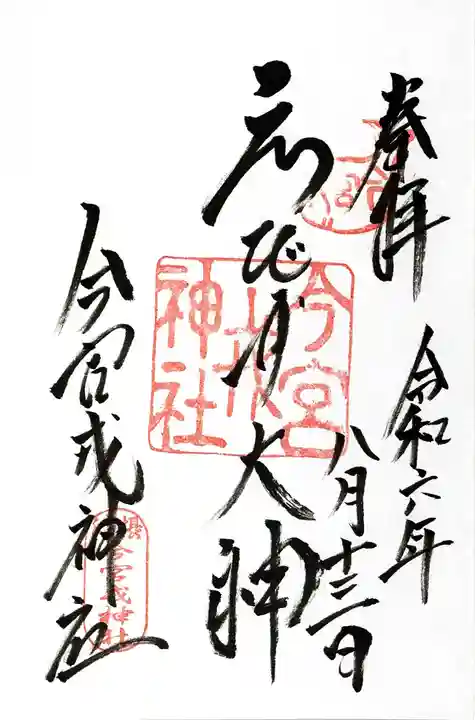 奉拝
令和六年
八月十三日
ゑびす大神
今宮戎神社
今宮
戎
神社
今宮戎神社